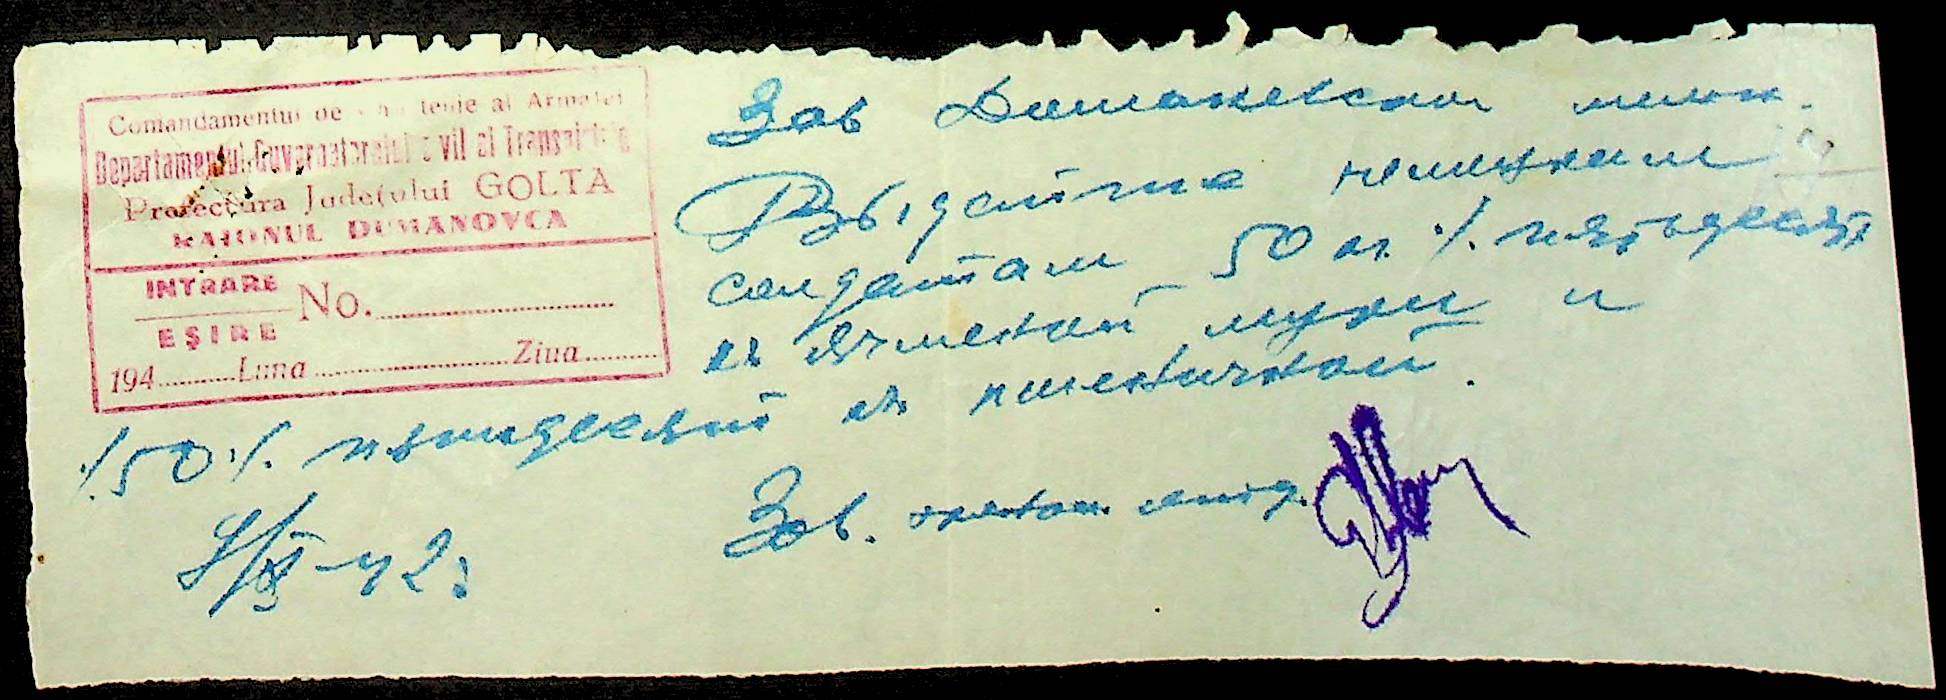 Comandamentul de al Armatei
Departamentul Guvernatorului Civil al Transnistriei
Prefectura Județului GOLTA
RAIONUL DUMANOVCA
INTRARE
EȘIRE
No.
194 Luna Ziua
Зав Доманевской
Выдайте немецким
солдатам 50 кг. /. пятьдесят
кг ячменной муки и
/50/. пятьдесят кг пшеничной.
Зав. отд.
42г